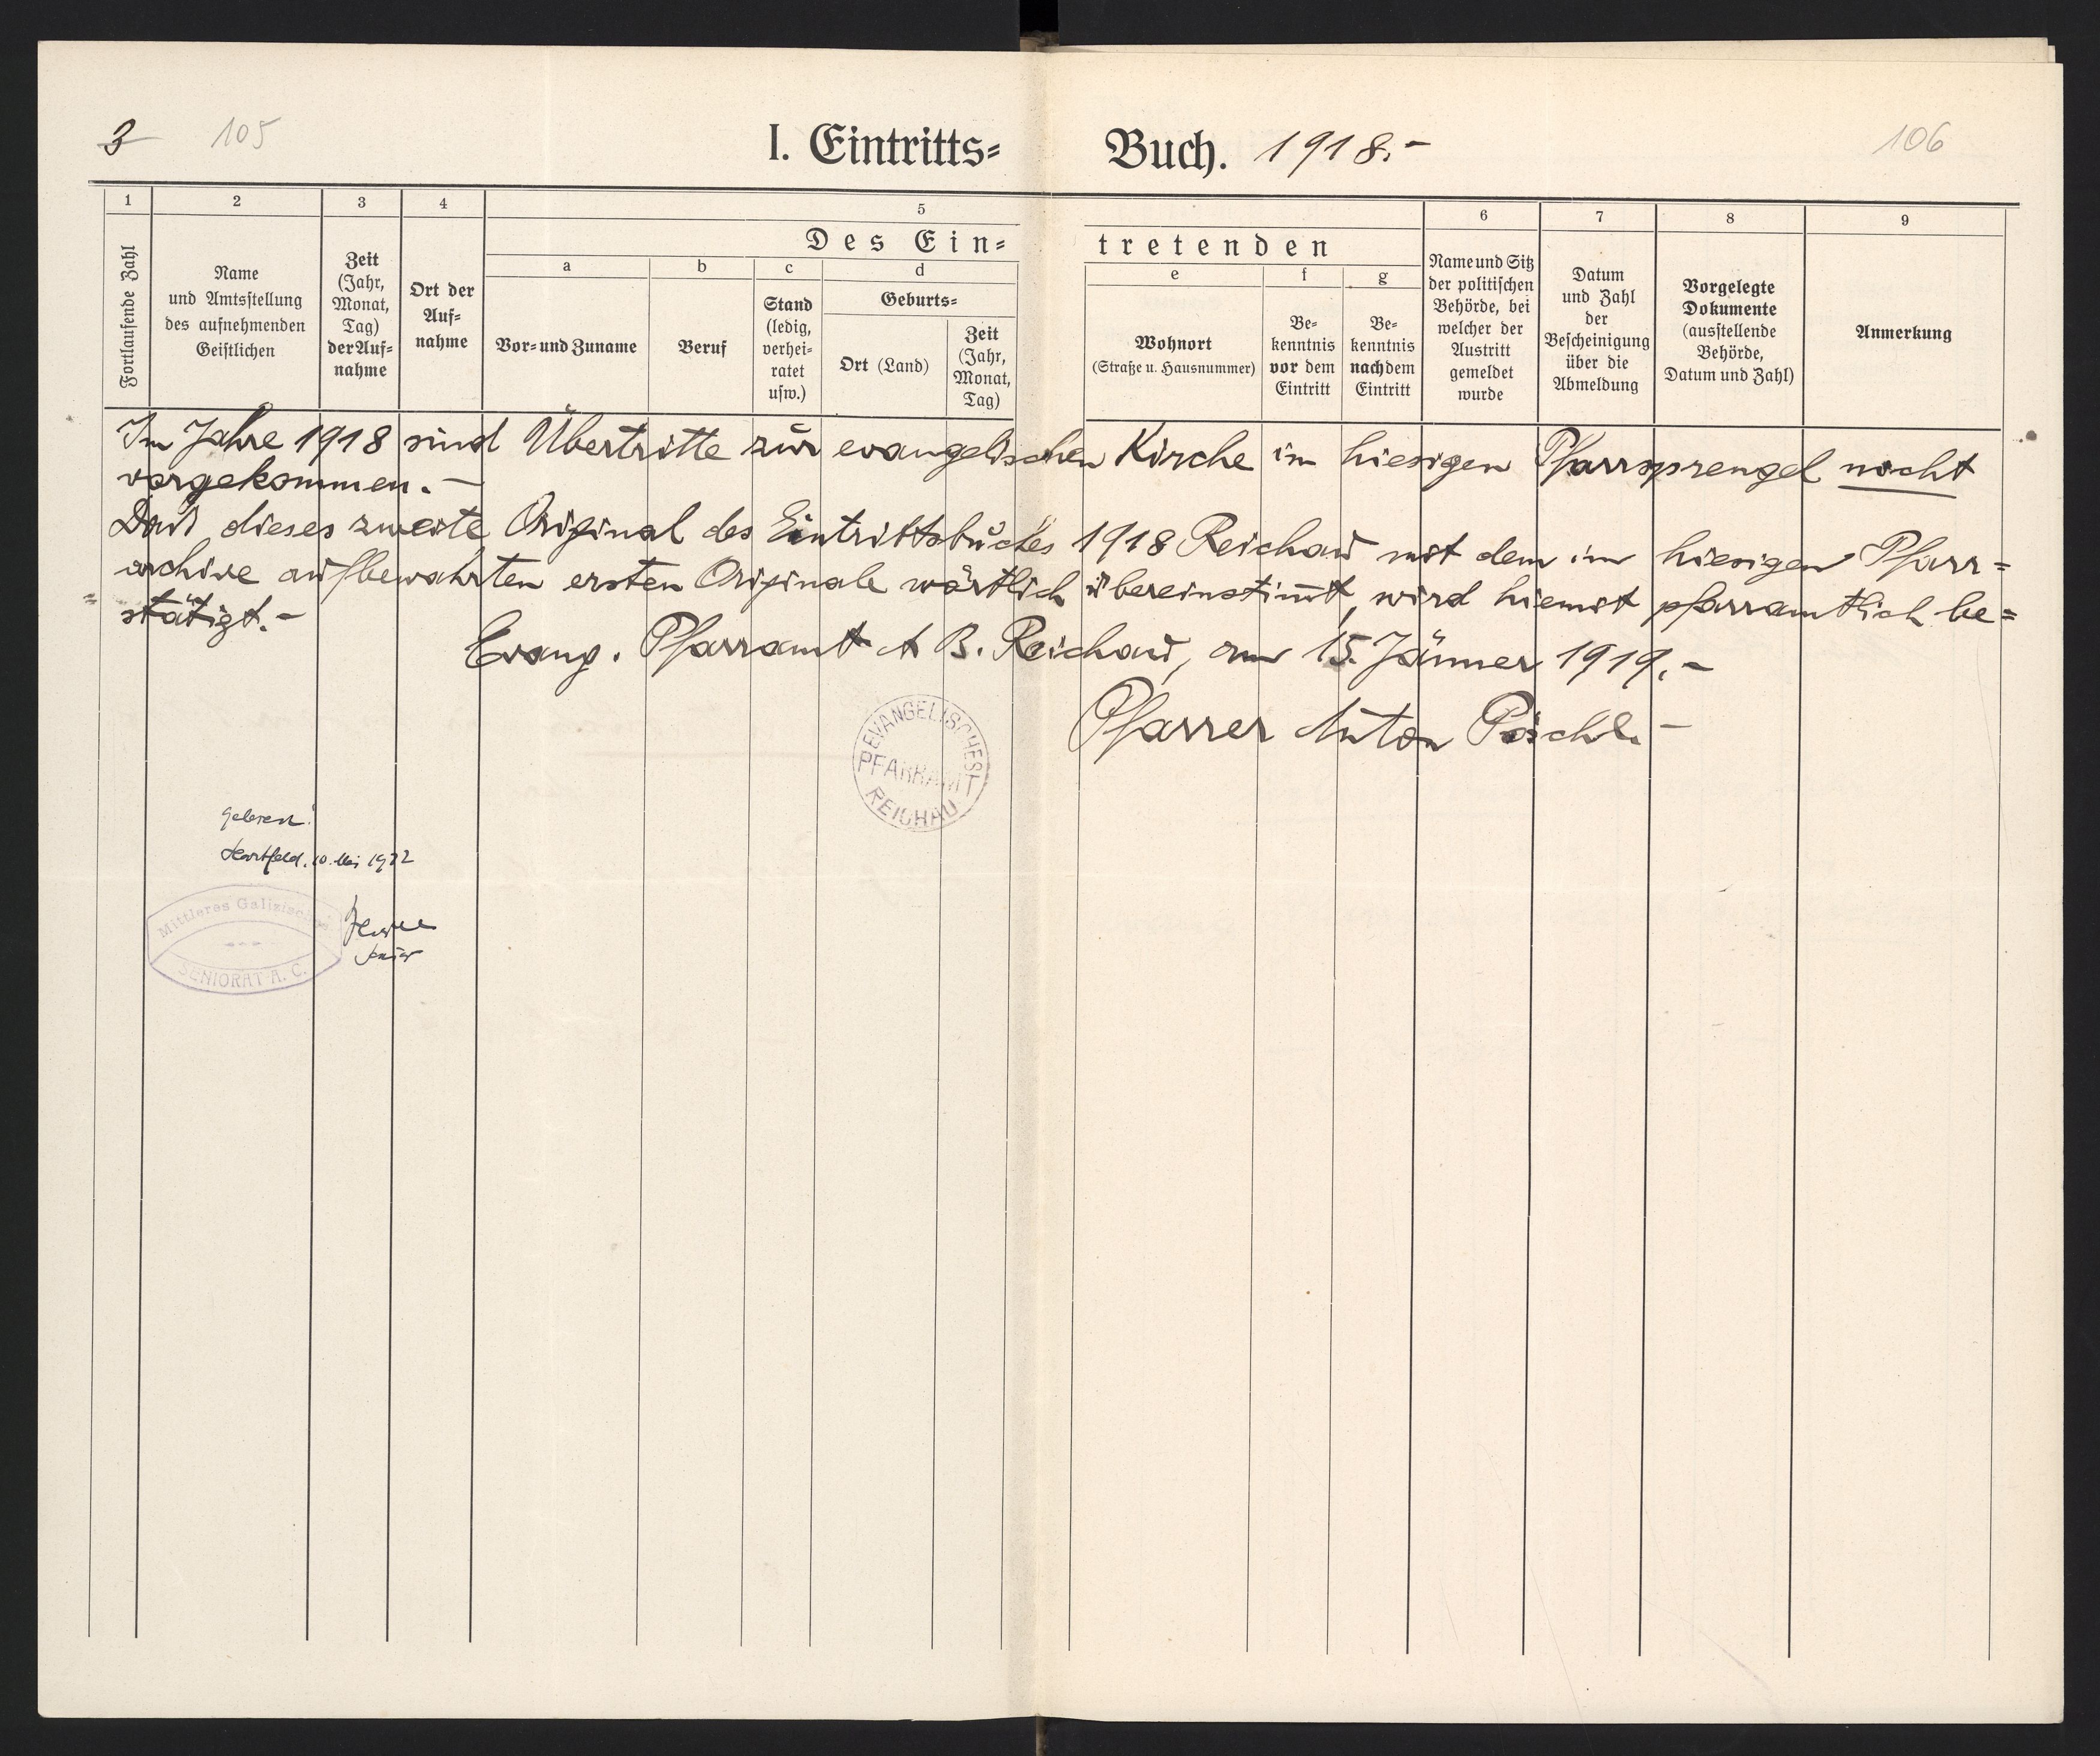 3 105
I. Eintritts- Buch. 1918.-
106
1 2 3 4 5 6 7 8 9
Des Ein- tretenden
a b c d e f g
Fortlaufende Zahl
Name
und Amtsstellung
des aufnehmenden
Geistlichen
Zeit
(Jahr,
Monat,
Tag)
der Auf-
nahme
Ort der
Auf-
nahme
Vor- und Zuname
Beruf
Stand
(ledig,
verhei-
ratet
usw.)
Geburts-
Ort (Land)
Zeit
(Jahr,
Monat,
Tag)
Wohnort
(Straße u. Hausnummer)
Be-
kenntnis
vor dem
Eintritt
Be-
kenntnis
nach dem
Eintritt
Name und Sitz
der politischen
Behörde, bei
welcher der
Austritt
gemeldet
wurde
Datum
und Zahl
der
Bescheinigung
über die
Abmeldung
Vorgelegte
Dokumente
(ausstellende
Behörde,
Datum und Zahl)
Anmerkung
Im Jahre 1918 sind Übertritte zur evangelischen Kirche im hiesigen Pfarrsprengel nicht
vorgekommen.-
Daß dieses zweite Original des Eintrittsbuches 1918 Reichau mit dem im hiesigen Pfarr=
archive aufbewahrten ersten Originale wörtlich übereinstim̅t, wird hiemit pfarramtlich be=
stätigt.-
Evang. Pfarramt A B. Reichau, am 15. Jänner 1919.-
Pfarrer Anton Pöschl.-
EVANGELISCHES
PFARRAMT
REICHAU
gelesen!
Hartfeld, 10. Mai 1922
Mittleres Galizisches
SENIORAT A. C.
Senior